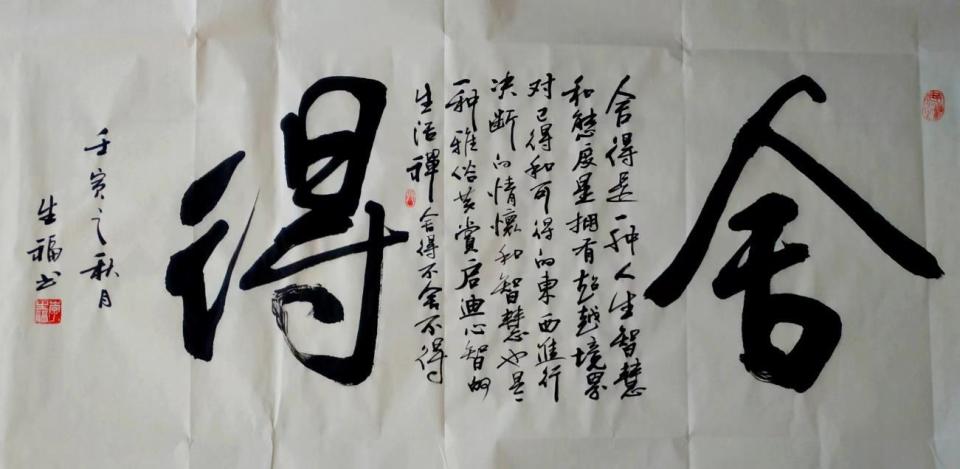 舍
舍得是一种人生智慧
和態度是拥有超越境界
对已得和可得的東西進行
决断的情懷和智慧也是
一种雅俗共赏启迪心智的
生活禪 舍得不舍不得
得
壬寅之秋月
生福书